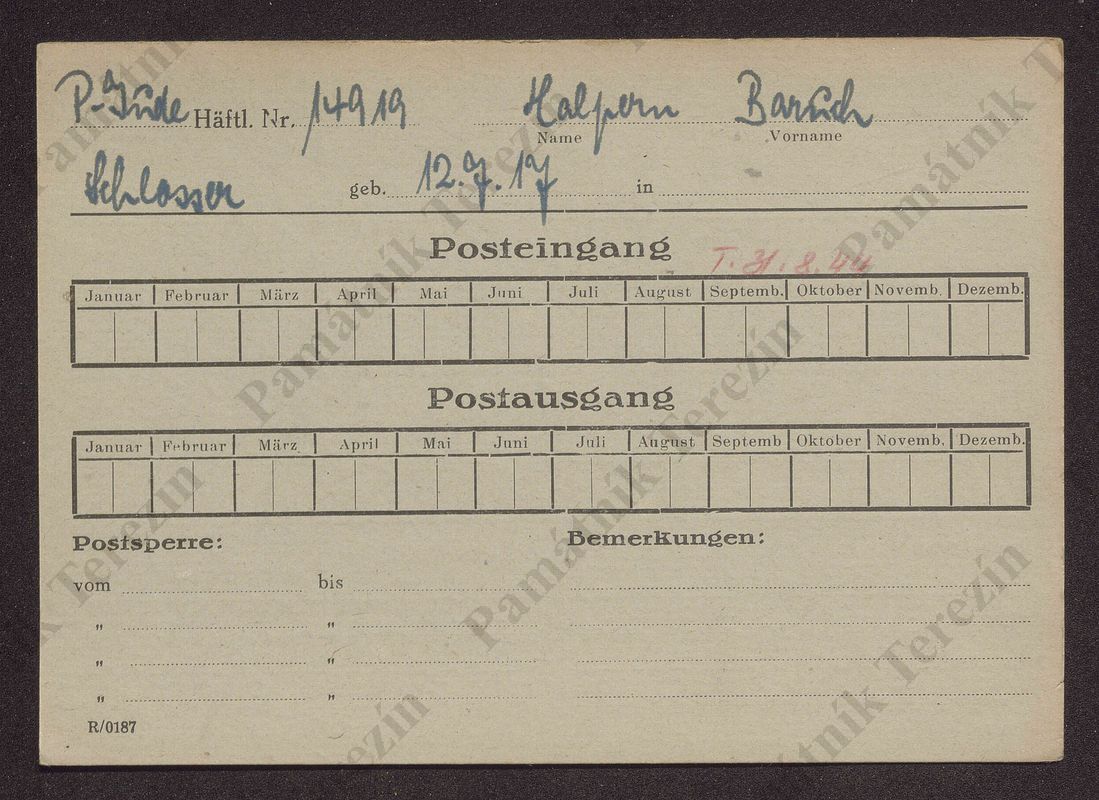 P-Jude Häftl. Nr. 14919 Halpern Baruch
Name Vorname
Schlosser geb. 12.7.17 in
Posteingang
T. 31.8.44
Januar Februar März April Mai Juni Juli August Septemb. Oktober Novemb. Dezemb.
Postausgang
Januar Februar März April Mai Juni Juli August Septemb Oktober Novemb. Dezemb.
Postsperre: Bemerkungen:
vom bis
" "
" "
" "
R/0187
Památník Terezín
Památník Terezín
Památník Terezín
Památník Terezín